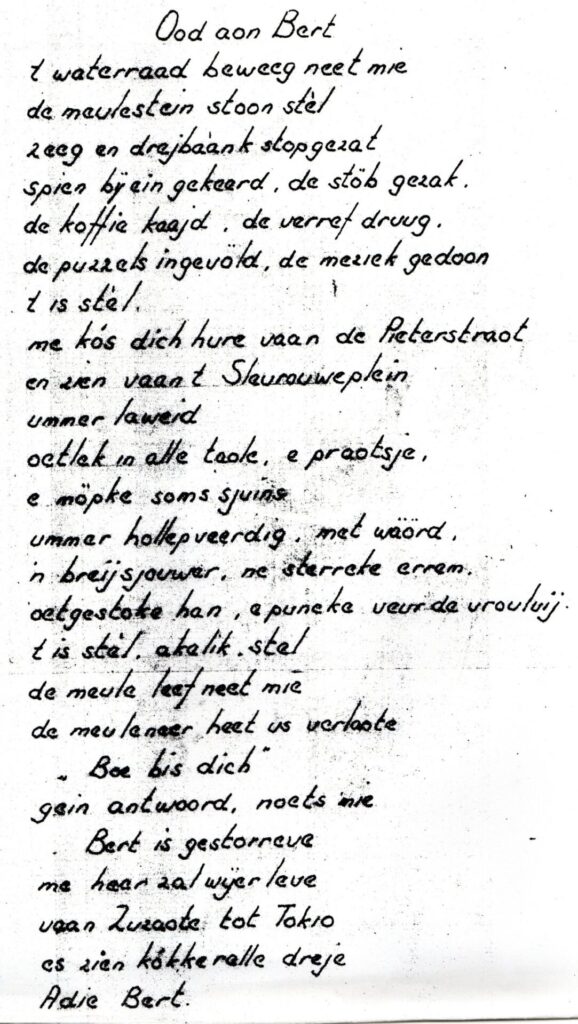 Ood aon Bert
't waterraad beweeg neet mie
de meulestein stoon stèl
zeeg en drejbàank stopgezat
spien bijein gekeerd, de stöb gezak.
de koffie kaajd, de verref druug.
de puzzels ingevöld, de meziek gedoon
't is stèl.
me kós dich hure vaan de Pieterstraot
en zien vaan 't Slevrouweplein
ummer laweid
oetlek in alle taole, e praotsje,
e möpke soms sjuins
ummer hollepveerdig, met wäörd,
'n breijsjouwer, ne sterreke errem.
oetgestoke han, e puneke veur de vrouluij.
't is stèl. akelik. stel
de meule leef neet mie
de meuleneer heet us verlaote
„Boe bis dich"
gein antwoord, noets mie
Bert is gestorreve
me heer zal wijer leve
vaan tot Tokio
es zien kókkeralle dreje
Adie Bert.